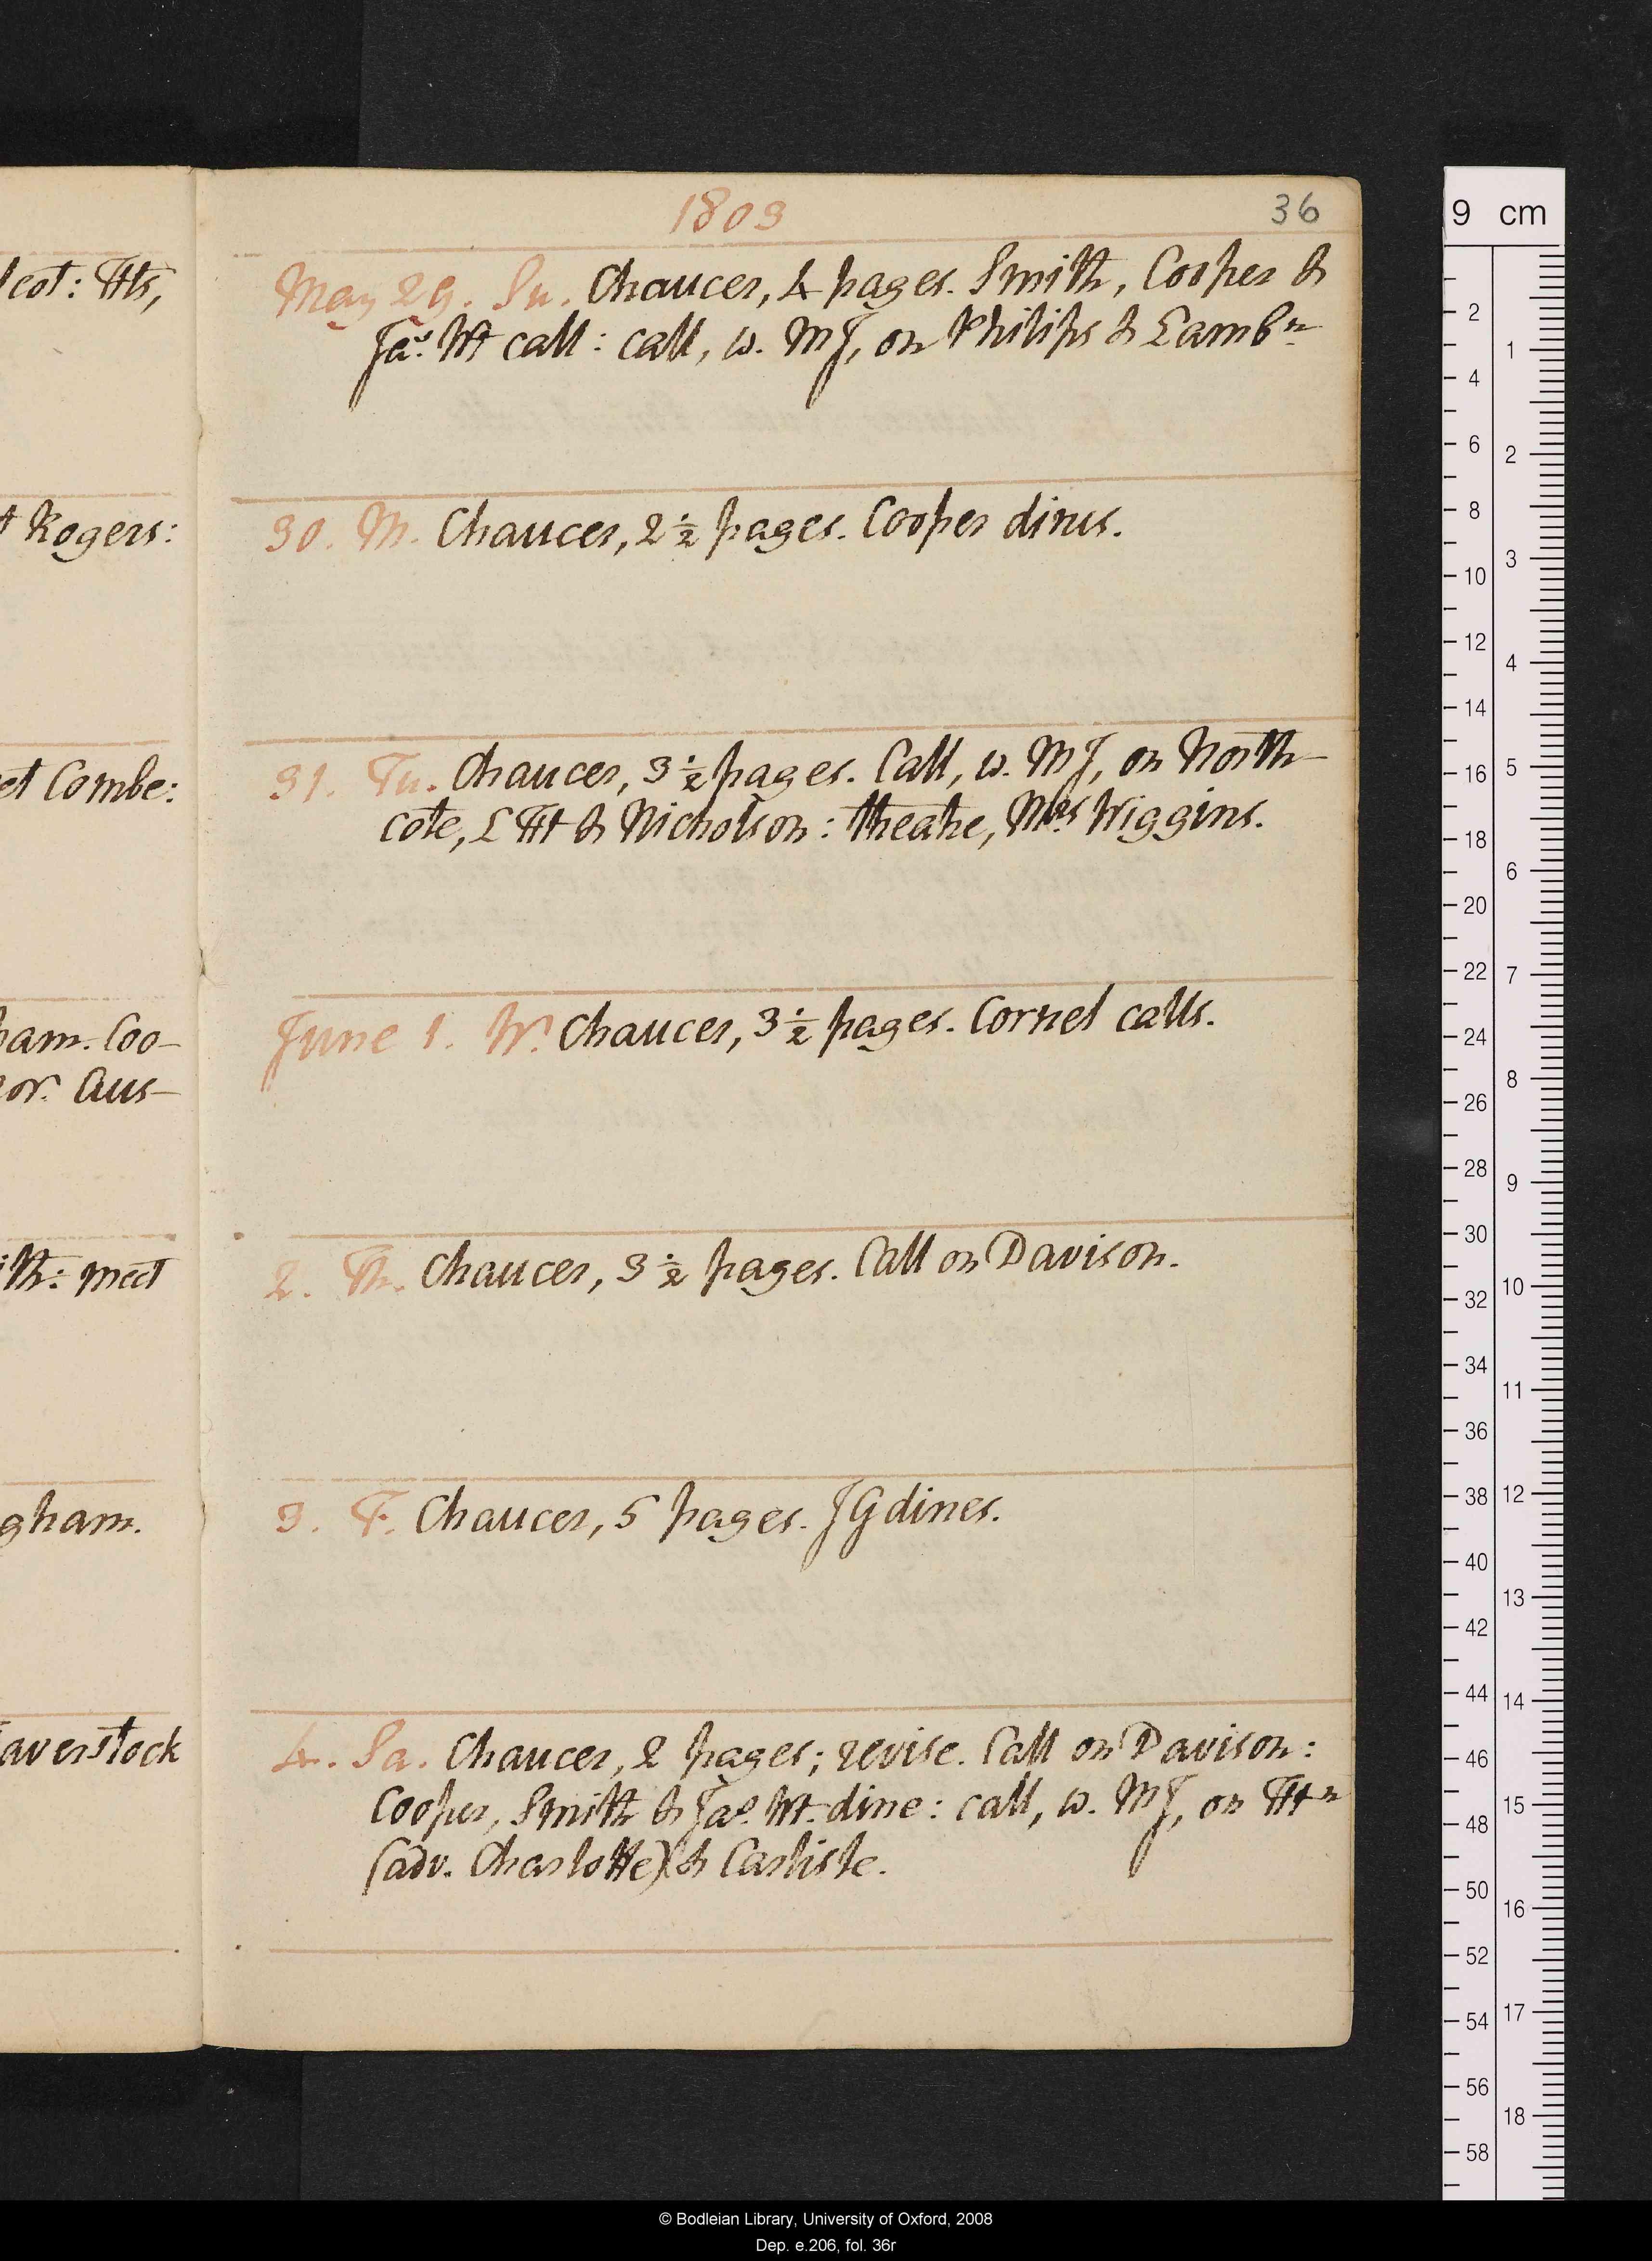 lcot: Hts,
t Rogers:
et Combe:
ham. Coo-
or. Aus-
ith: meet
gham.
averstock
1803
36
May 29. Su. Chaucer, 4 pages. Smith, Cooper &
Jas. Mt call: call, w. MJ, on Philips & Lambn
30. M. Chaucer, 2½ pages. Cooper dines.
31. Tu. Chaucer, 3½ pages. Call, w. MJ, on North-
cote, L Ht & Nicholson: theatre, Mrs Wiggins.
June 1. W. Chaucer, 3½ pages. Cornel calls.
2. Th. Chaucer, 3½ pages. Call on Davison.
3. F. Chaucer, 5 pages. J G dines.
4. Sa. Chaucer, 2 pages; revise. Call on Davison:
Cooper, Smith & Jas. Mt. dine: call, w. MJ, on Htn
(adv. Charlotte) & Carlisle.
9 cm
2
4
6
8
10
12
14
16
18
20
22
24
26
28
30
32
34
36
38
40
42
44
46
48
50
52
54
56
58
1
2
3
4
5
6
7
8
9
10
11
12
13
14
15
16
17
18
© Bodleian Library, University of Oxford, 2008
Dep. e.206, fol. 36r